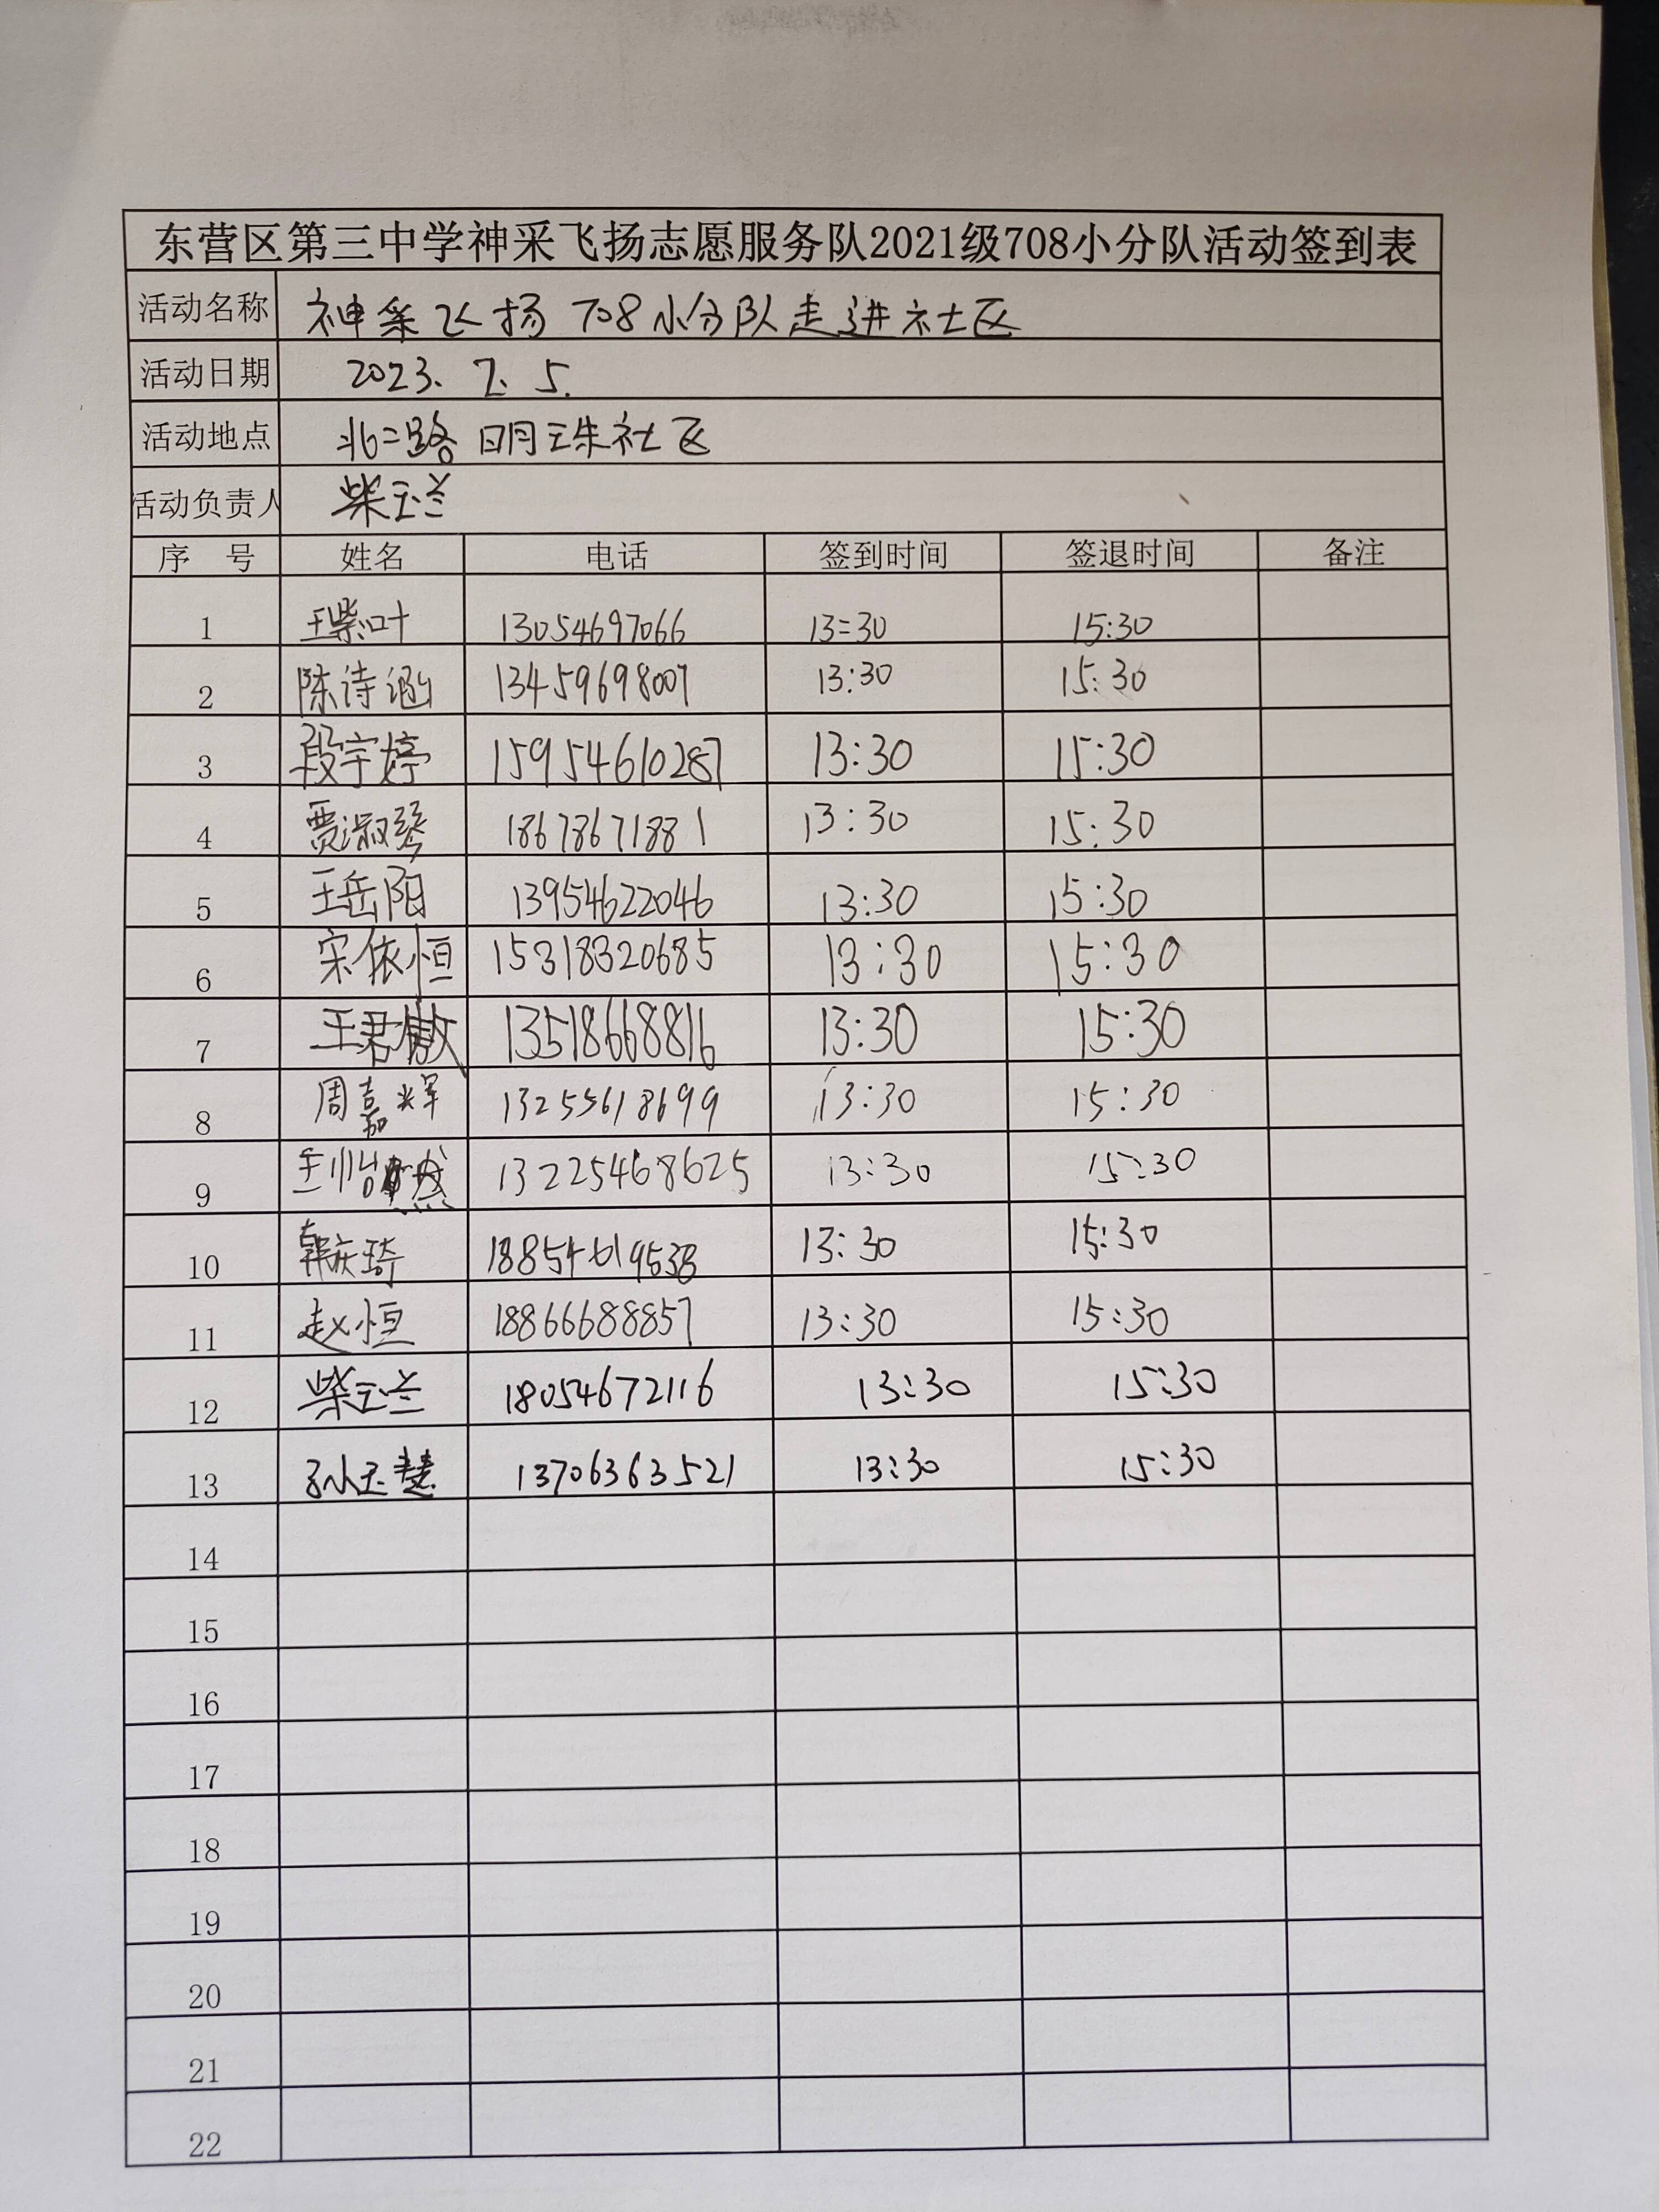 东营区第三中学神采飞扬志愿服务队2021级708小分队活动签到表
活动名称 神采飞扬 708小分队走进社区
活动日期 2023. 7. 5.
活动地点 北二路 明珠社区
活动负责人 柴玉兰
序 号 姓名 电话 签到时间 签退时间 备注
1 王柴叶 13054697066 13:30 15:30
2 陈诗涵 13459698007 13:30 15:30
3 段宇婷 15954610287 13:30 15:30
4 贾淑琴 18678671881 13:30 15:30
5 王岳阳 13954622046 13:30 15:30
6 宋依恒 15318320685 13:30 15:30
7 王君傲 13518668816 13:30 15:30
8 周嘉辉 13255618699 13:30 15:30
9 王怡然 13225468625 13:30 15:30
10 韩庆琦 13:30 15:30
11 赵恒 18866688857 13:30 15:30
12 柴玉兰 18054672116 13:30 15:30
13 孙玉慧 13706363521 13:30 15:30
14
15
16
17
18
19
20
21
22